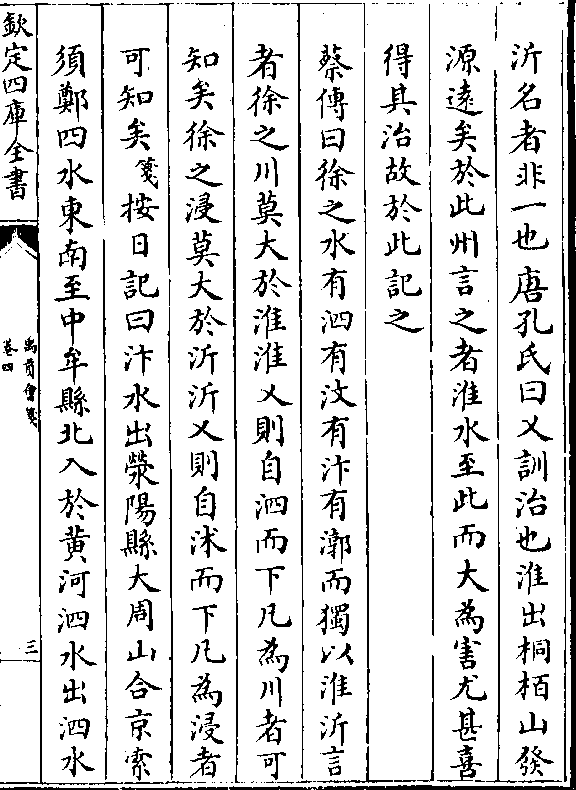 沂名者非一也唐孔氏曰乂訓治也淮出桐栢山發
源逺矣於此州言之者淮水至此而大為害尤甚喜
得其治故於此記之
蔡傳曰徐之水有泗有汶有汴有漷而獨以淮沂言
者徐之川莫大於淮淮乂則自泗而下凡為川者可
知矣徐之浸莫大於沂沂乂則自沭而下凡為浸者
可知矣箋按日記曰汴水出滎陽縣大周山合京索
須鄭四水東南至中牟縣北入於黄河泗水出泗水
欽定四庫全書
禹貢會箋
卷四
三